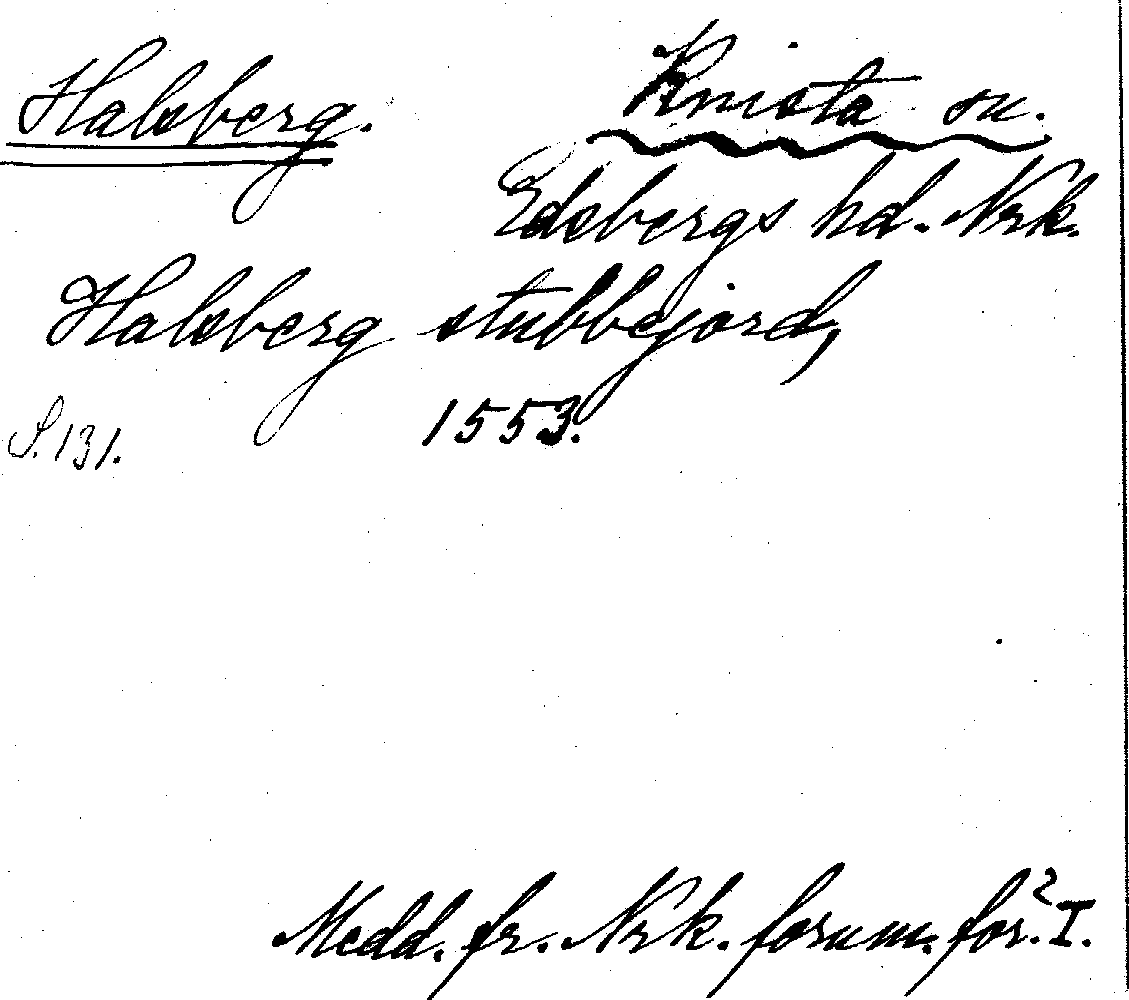 Halsberg.
Knista sn.
Edsbergs hd. Nrk.
Halsberg stubbejord,
S. 131. 1553.
Medd. fr. Nrk. fornm. för. I.